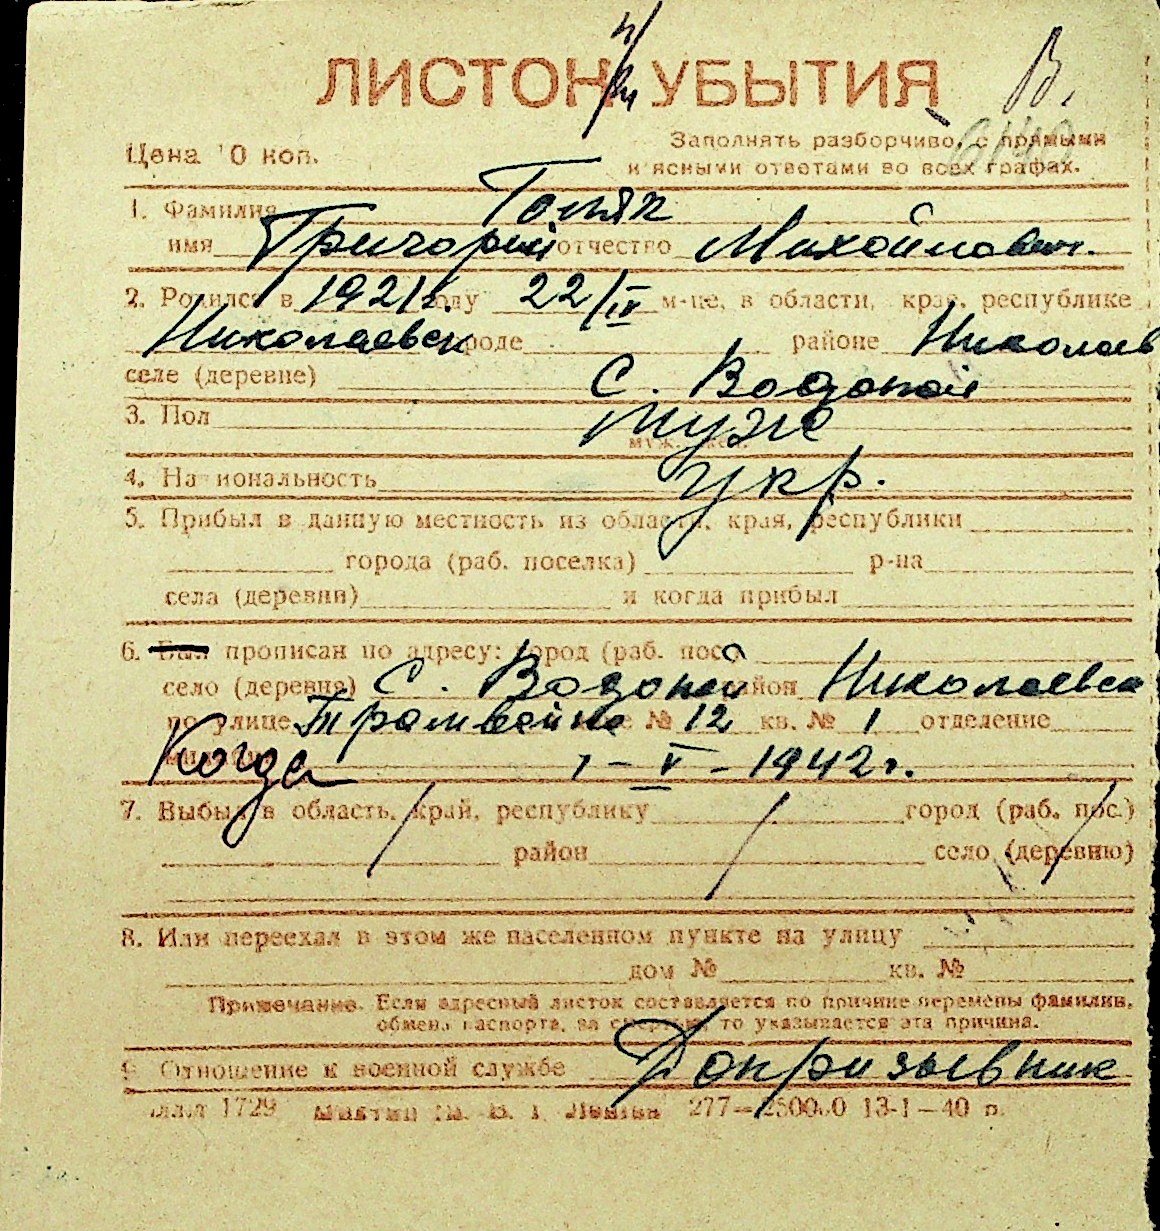 ЛИСТОК УБЫТИЯ
В.
Цена 10 коп.
Заполнять разборчиво, с прямыми
и ясными ответами во всех графах.
1. Фамилия
имя Григорий отчество Михайлович.
2. Родился в 1921 г. году 22/IV м-це, в области, крае, республике
Николаевск городе районе Николаев
селе (деревне) С. Водопой
3. Пол муж
муж. жен.
4. Национальность укр.
5. Прибыл в данную местность из области, края, республики
города (раб. поселка) р-на
села (деревни) и когда прибыл
6. Был прописан по адресу: город (раб. пос.)
село (деревня) С. Водопой район Николаевск
по улице Трамвайна № 12 кв. № 1 отделение
милиции Когда 1-V-1942 г.
7. Выбыл в область, край, республику город (раб. пос.)
район село (деревню)
8. Или переехал в этом же населенном пункте на улицу
дом № кв. №
Примечание. Если адресный листок составляется по причине перемены фамилии,
обмена паспорта, за смертью, то указывается эта причина.
9. Отношение к военной службе Допризывник
1729 277—250000 13-1—40 г.